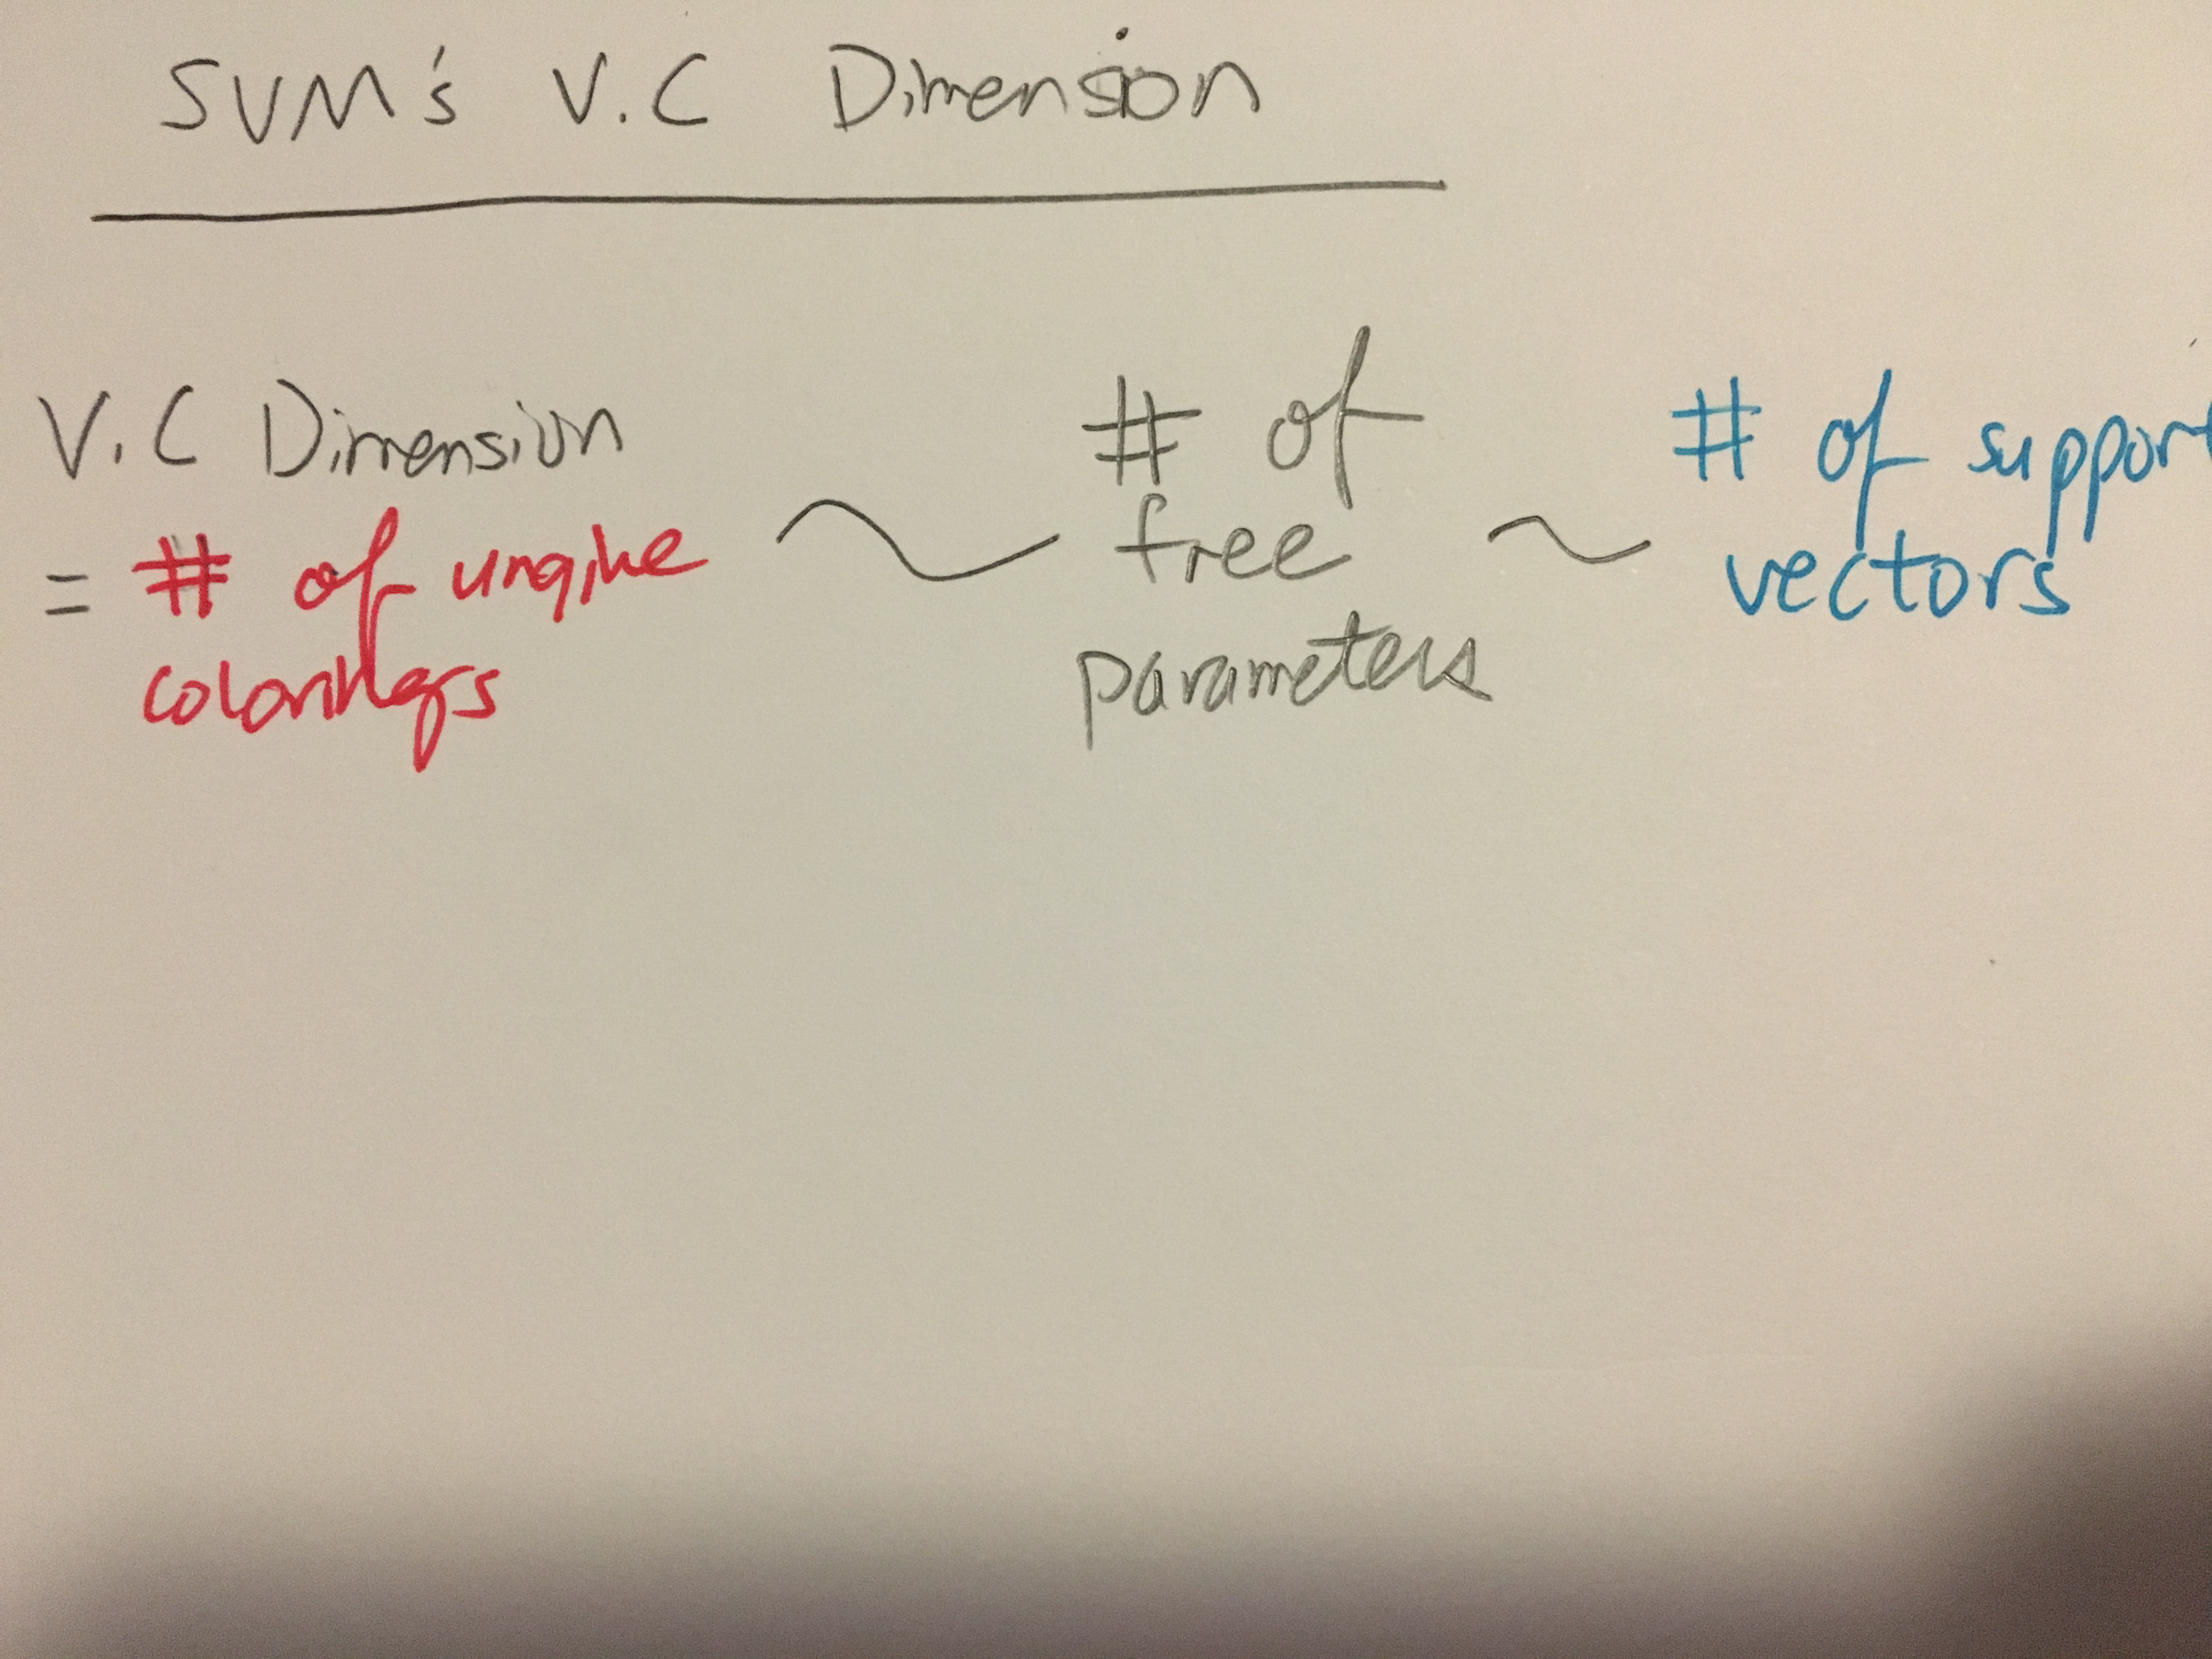 SVM's V.C Dimension
V.C Dimension
= # of unqike
colorings
~
# of
free
parameters
~
# of support
vectors